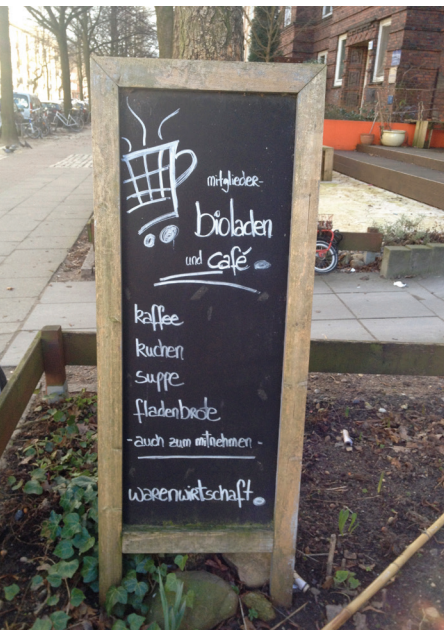 mitglieder-
bioladen
und café.
kaffee
kuchen
suppe
fladenbrote
-auch zum mitnehmen-
warenwirtschaft.